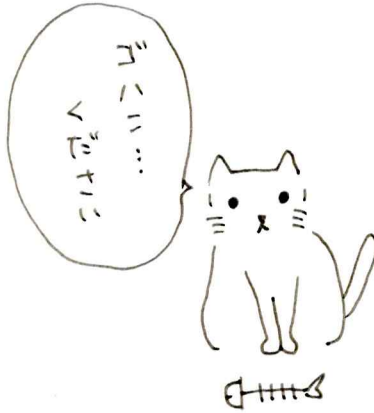 ゴハン…
ください